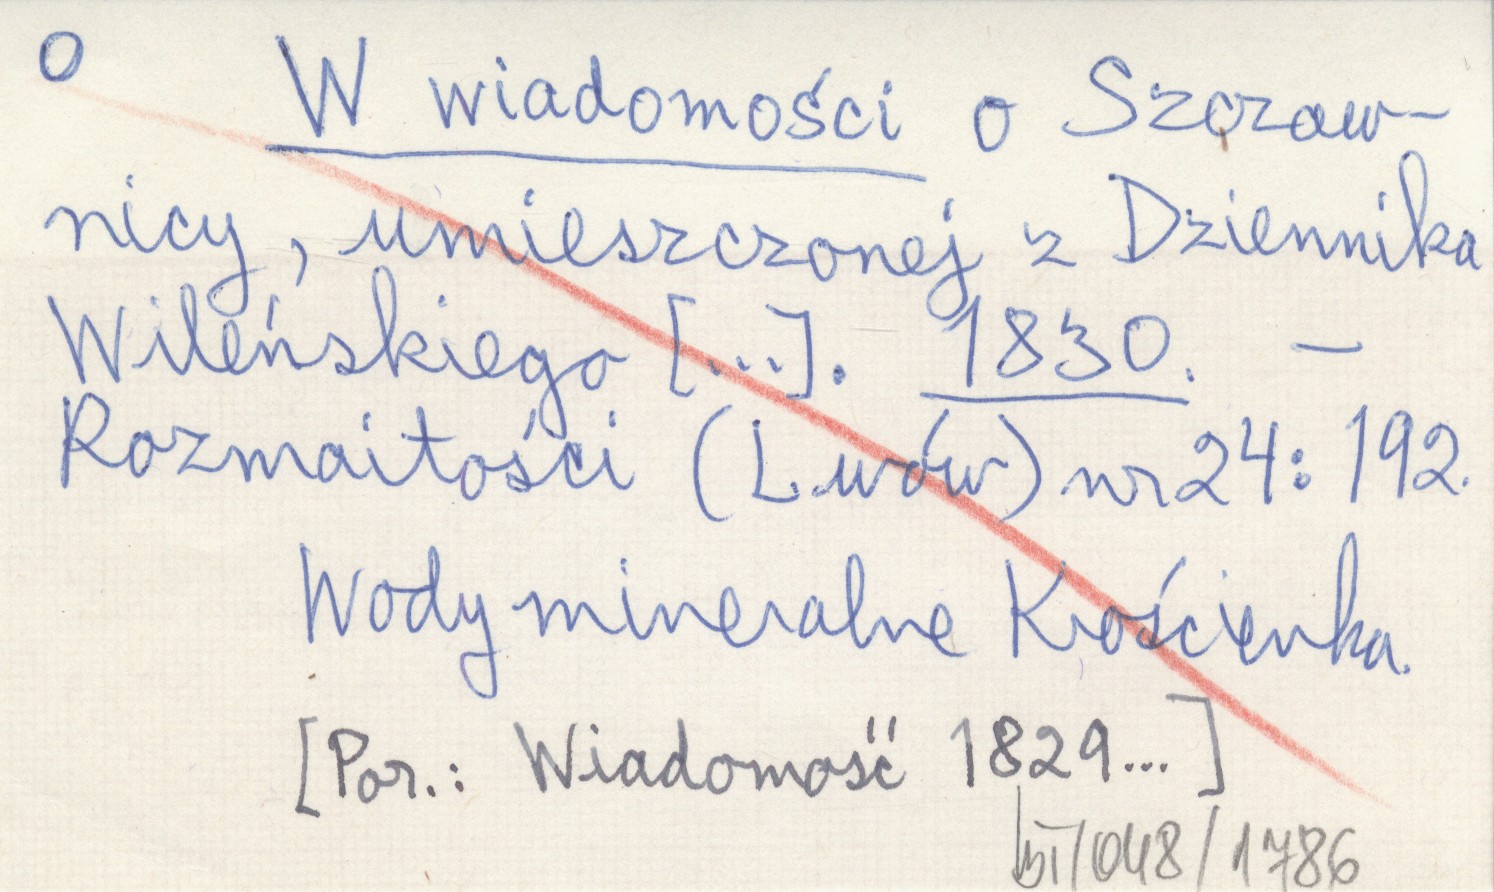 o W wiadomości o Szczaw-
nicy, umieszczonej z Dziennika
Wileńskiego [...]. 1830. –
Rozmaitości (Lwów) nr 24: 192.
Wody mineralne Krościenka.
[Por.: Wiadomość 1829...]
/048/1786